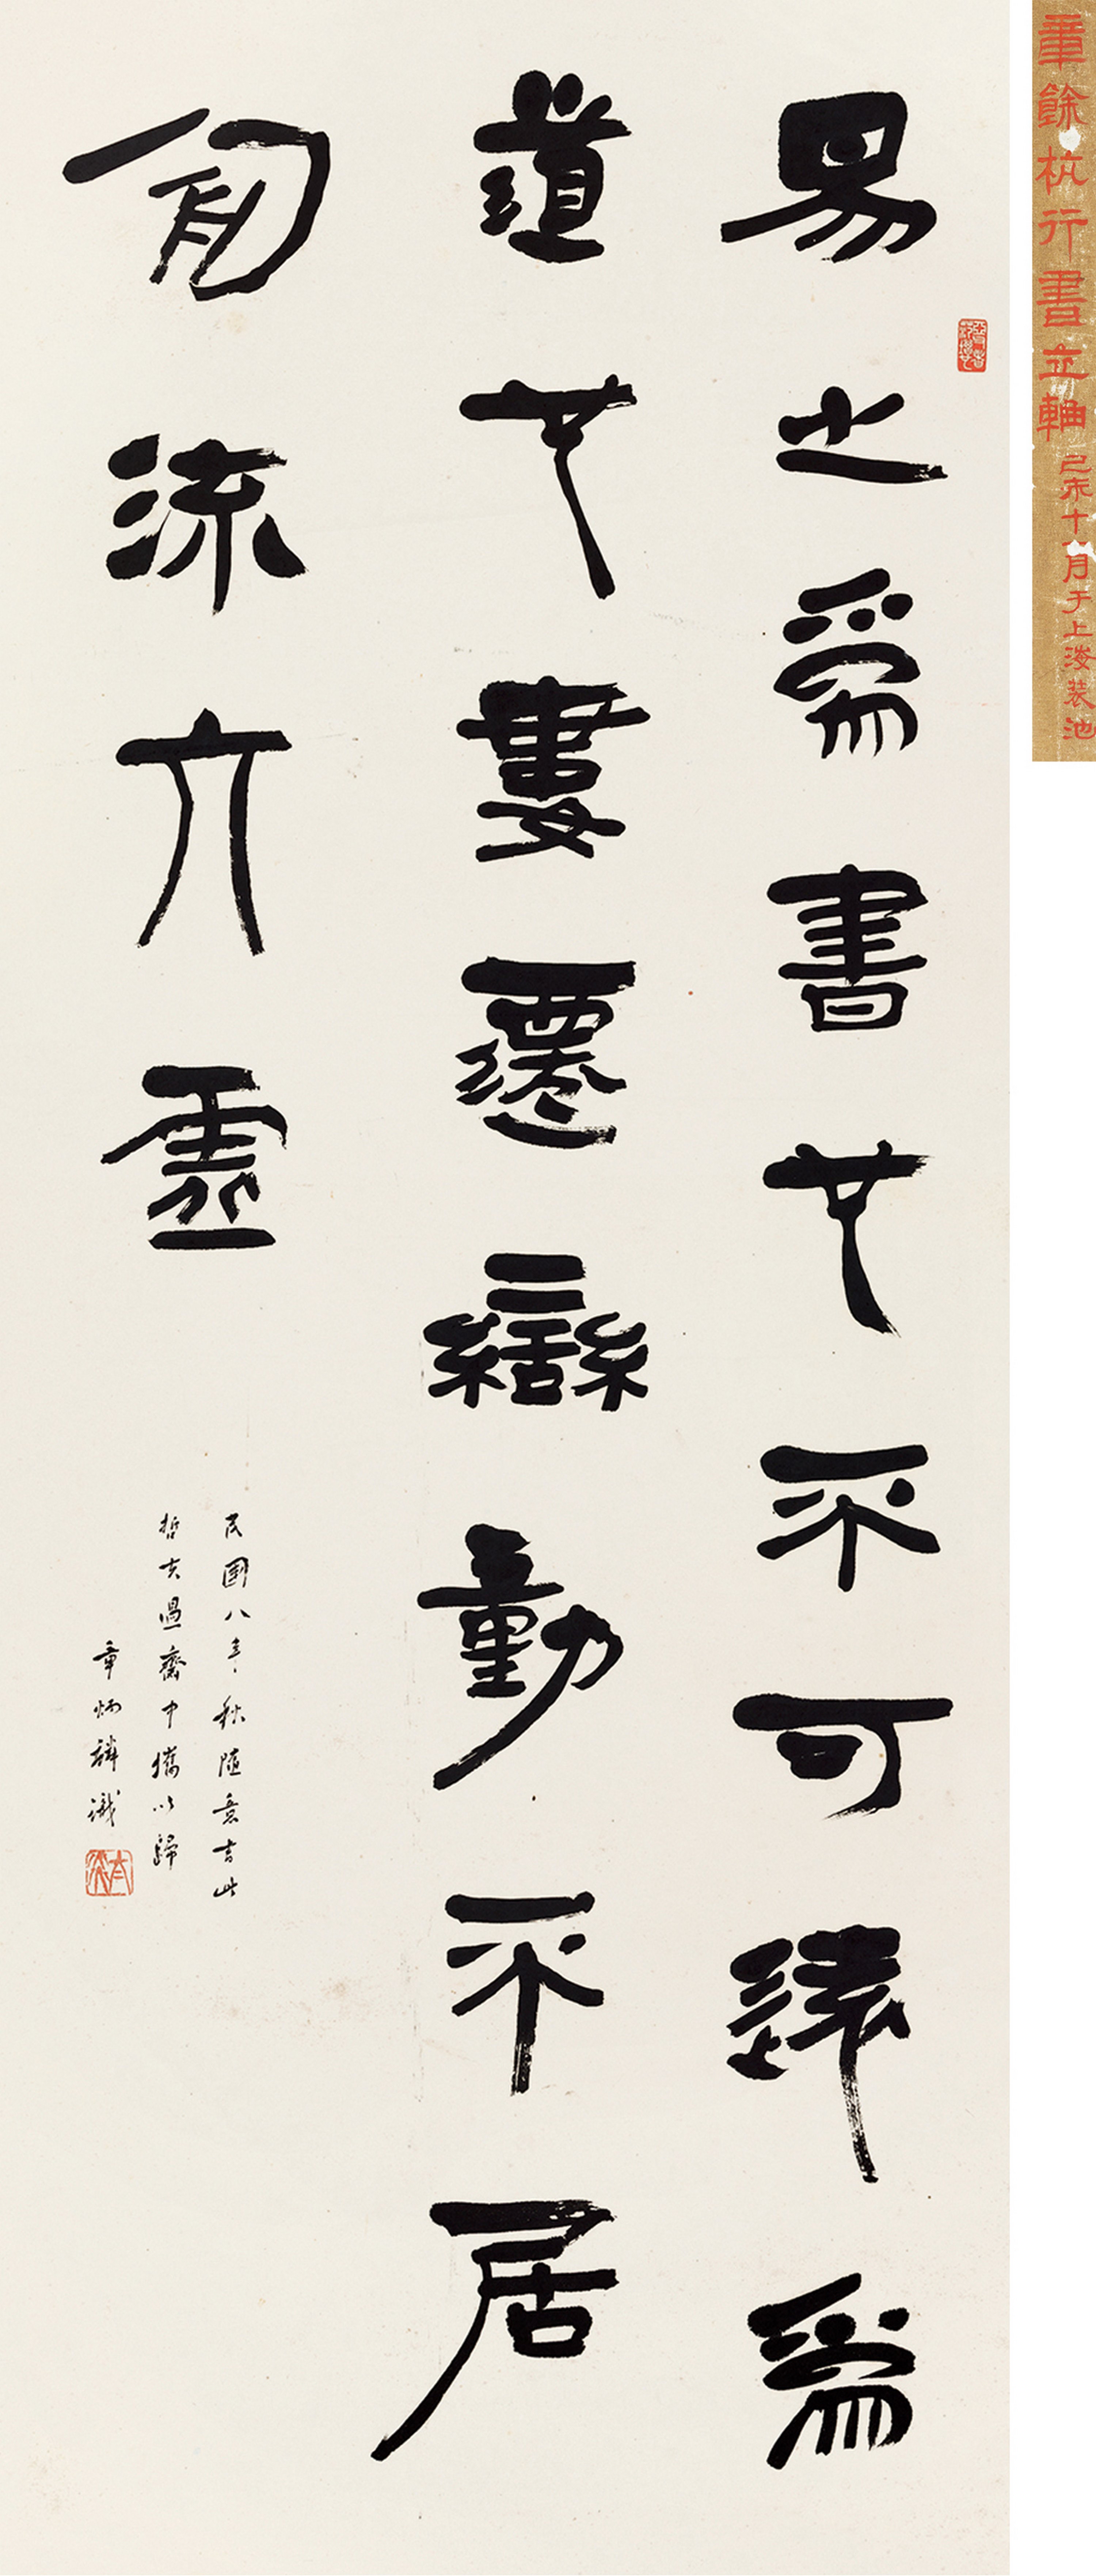 章餘杭行書立軸 己未十一月于上海裝池
易之爲書也不可遠爲
道也婁遷變動不居
𠣘流六虛
民國八年秋隨意書此
哲夫過齋中攜以歸
章炳麟識
太炎